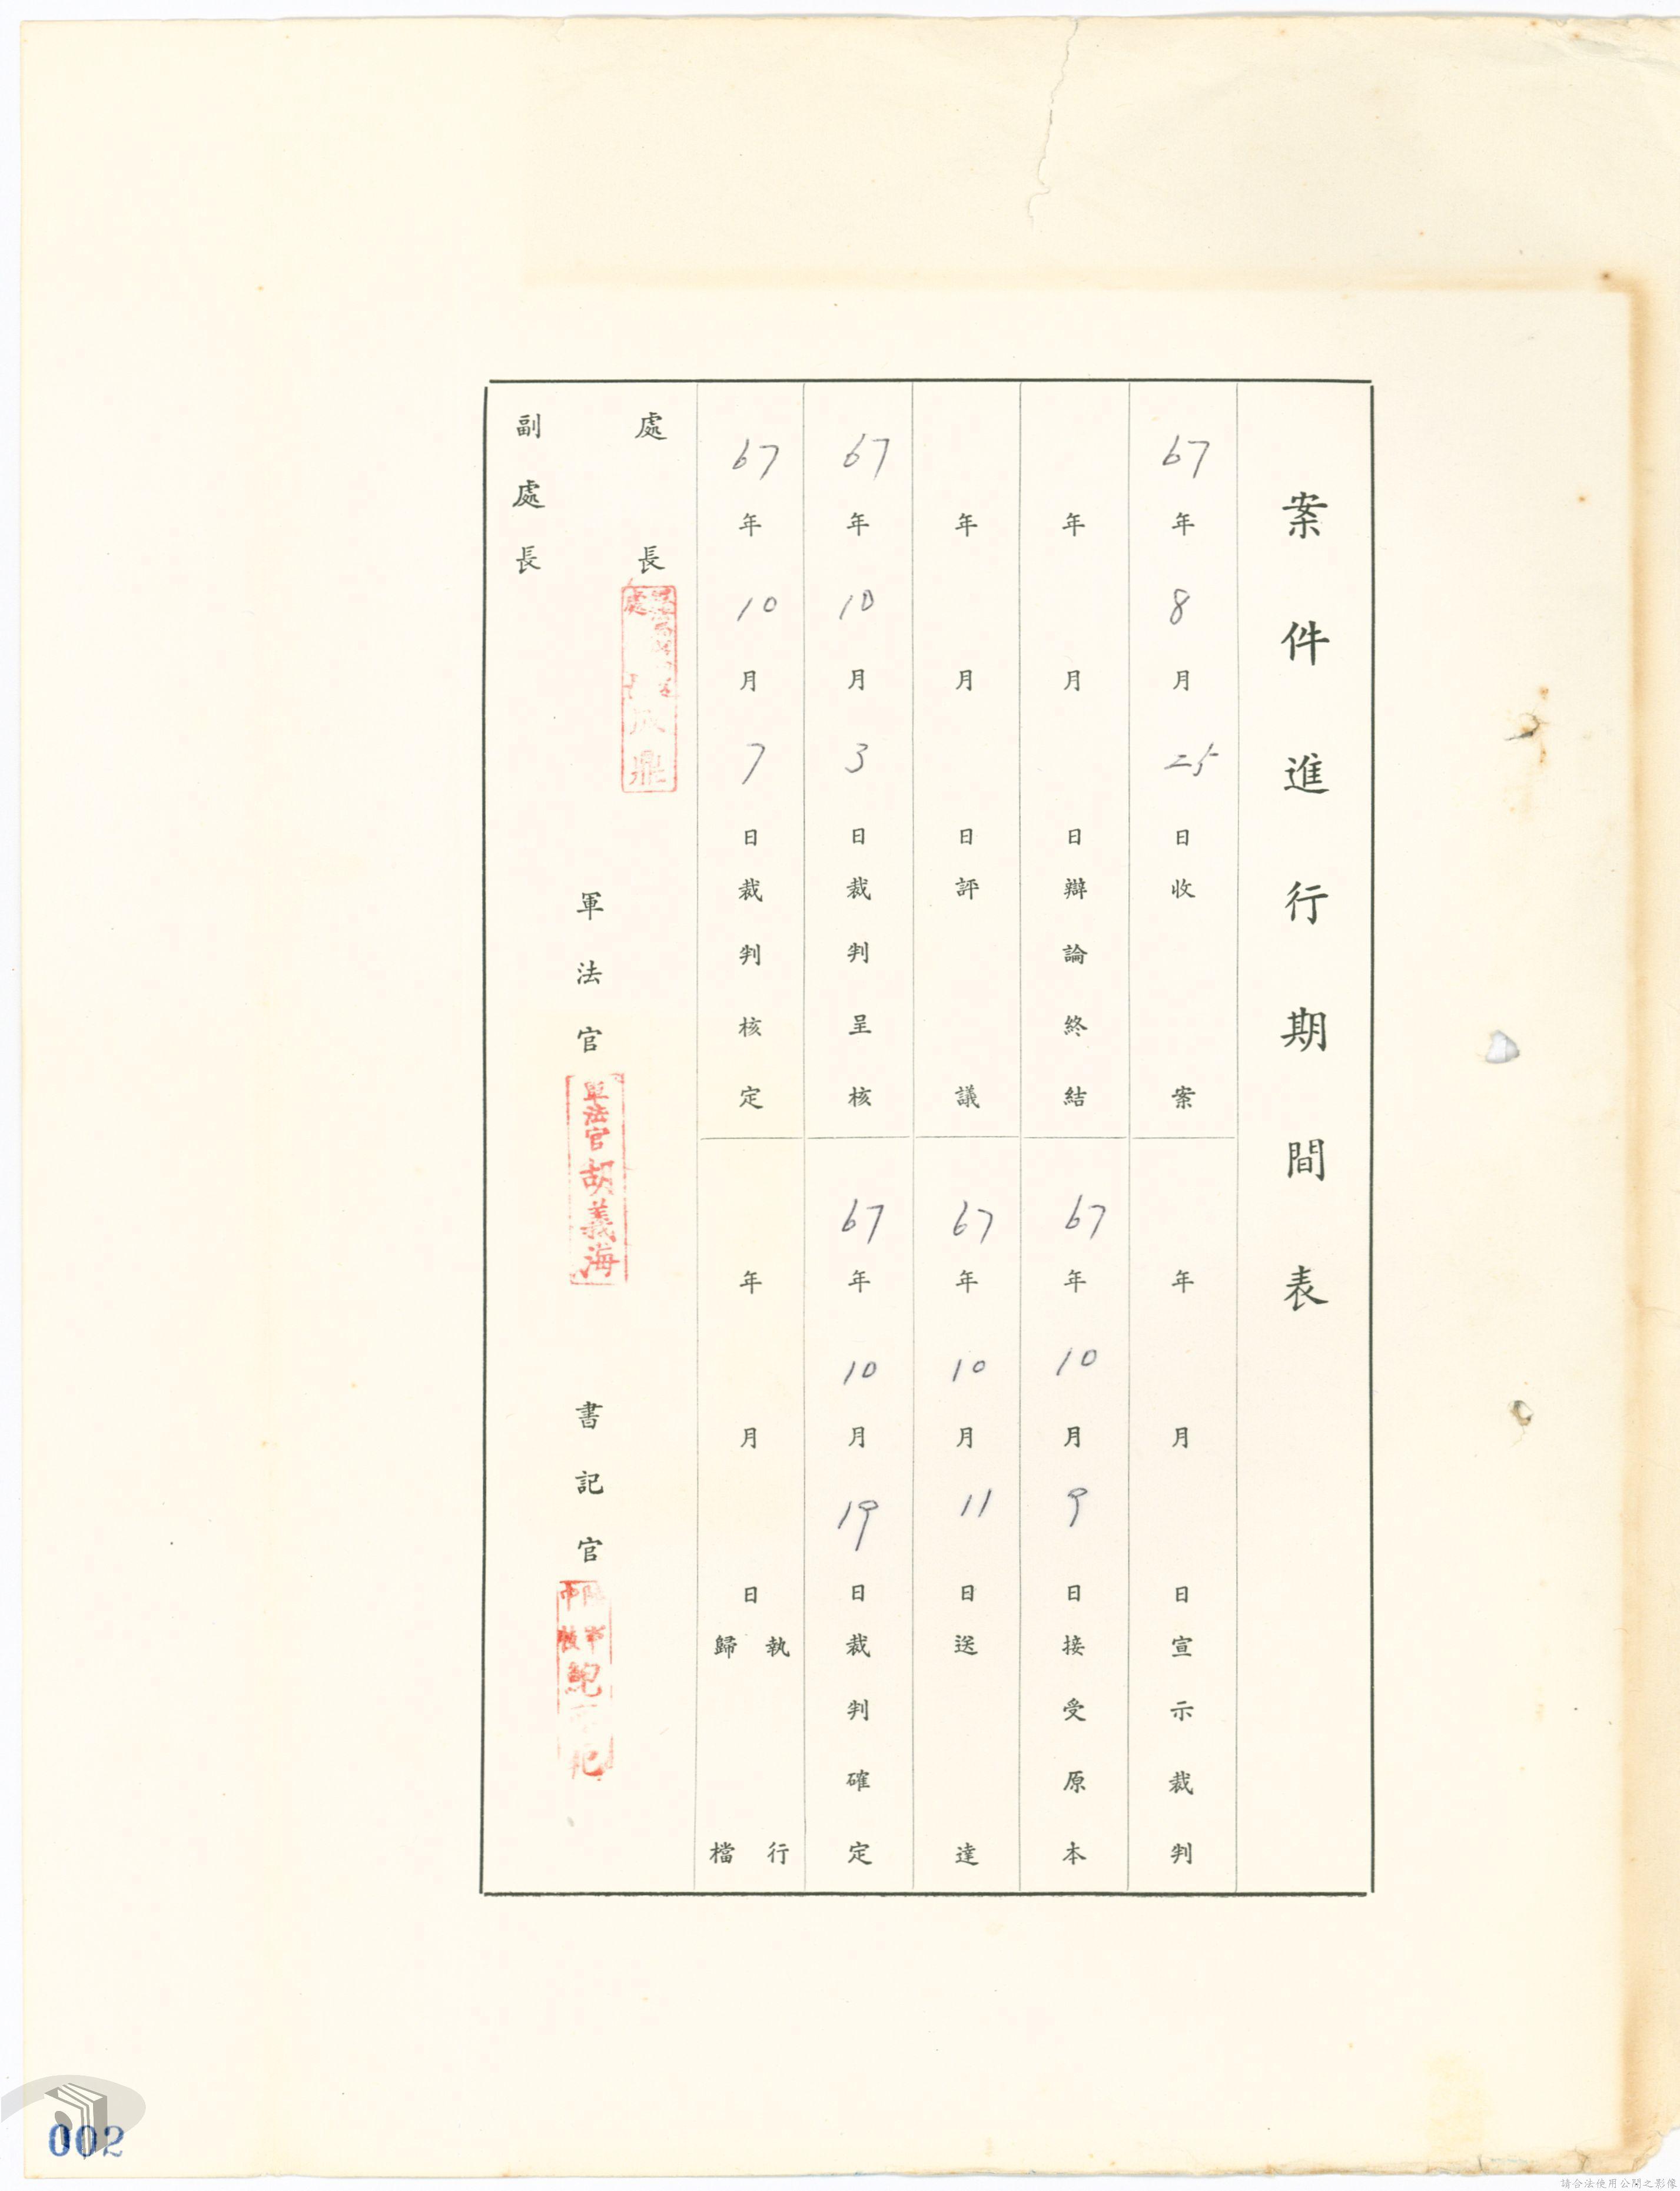 案件進行期間表
67年8月25日收案
年月日宣示裁判
年月日辯論終結
67年10月9日接受原本
年月日評議
67年10月11日送達
67年10月3日裁判呈核
67年10月19日裁判確定
67年10月7日裁判核定
年月日執行
歸檔
處長
鼎
副處長
軍法官
軍法官胡義海
書記官
鮑
002
請合法使用公開之影像